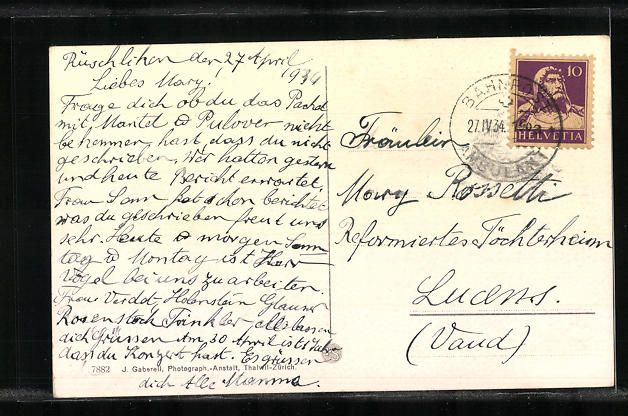 Rüschlikon den 27 April
1934
Liebes Mary!
Frage dich ob du das Packet
mit Mantel & Pulover nicht
bekommen hast, das du nicht
geschrieben. Wir hatten gestern
und heute Bericht erwartet,
Frau Sann hat schon berichtet
was du geschrieben freut uns
sehr. Heute & morgen Sonn
tag & Montag ist Herr
Vogel bei uns zu arbeiten.
Frau Holenstein Glauser
Rosenstock alle lassen
dich Grüssen Am 30 April ist
das du Konzert hast. Es grüssen
dich Alle Mamma.
7882 J. Gaberell, Photograph.-Anstalt, Thalwil-Zürich.
10
HELVETIA
BAHNPOST
27.IV.34.
AMBULANT
Fräulein
Mary Rossetti
Reformiertes Töchterheim
Lucens.
(Vaud)